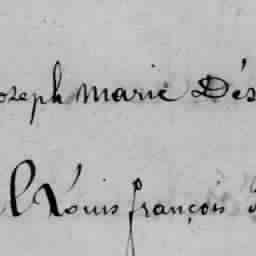 Joseph Marie Dés
Louis françois